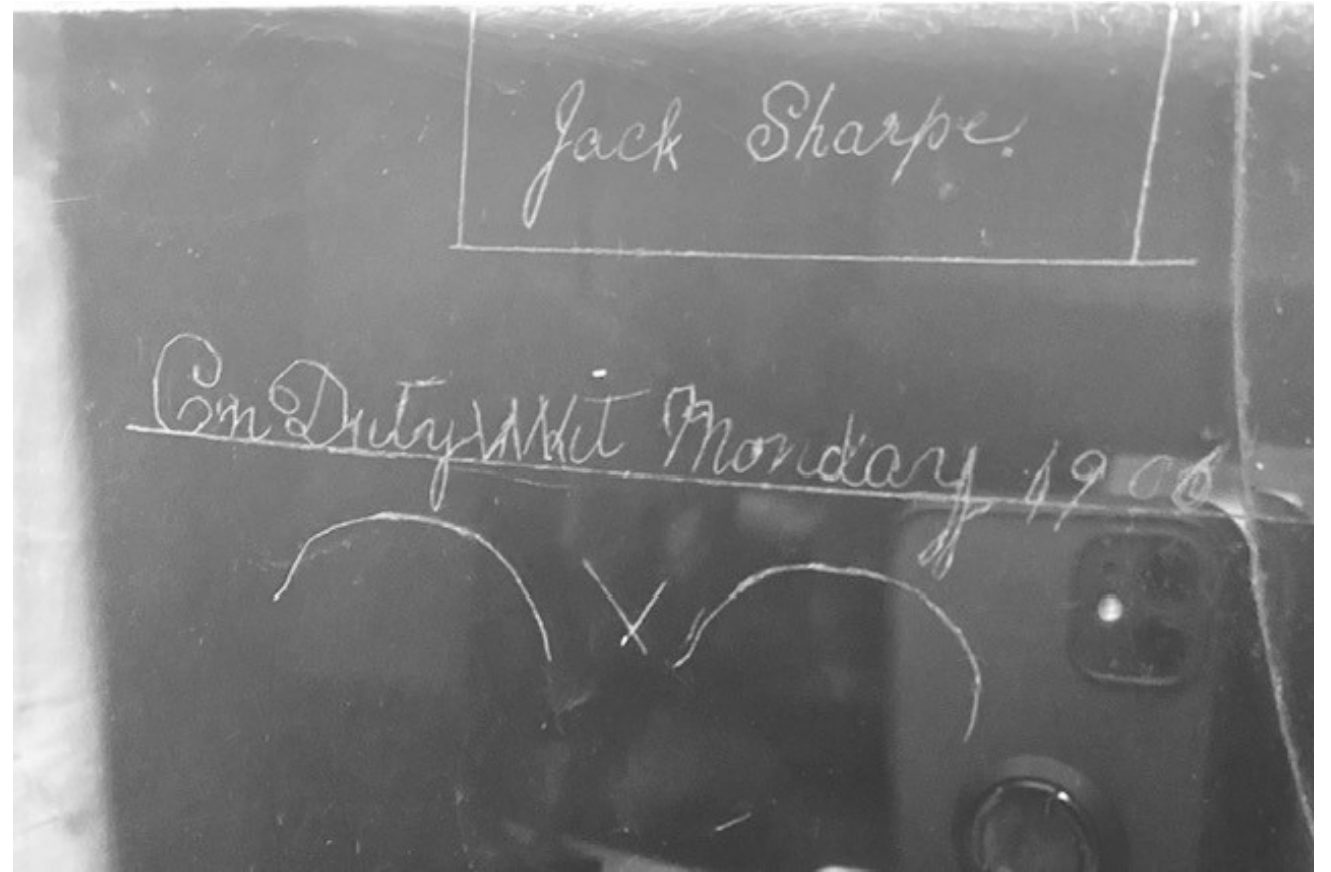 Jack Sharpe.
On Duty Whit Monday 1906